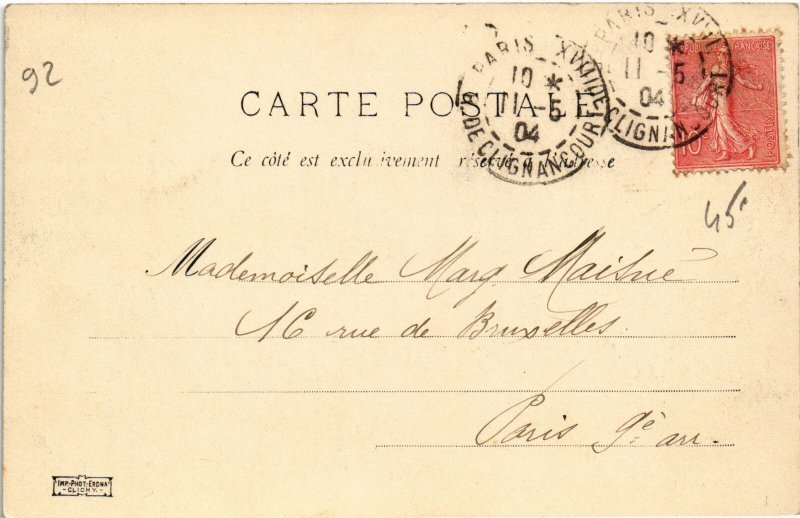 92
PARIS XVIII
10 *
11 -5
04
R. DE CLIGNANCOURT
PARIS XVIII
10 *
11 -5
04
DE CLIGNANCOURT
REPUBLIQUE FRANÇAISE
10
POSTES
CARTE POSTALE
Ce côté est exclusivement réservé à l'adresse
45
Mademoiselle Marg. Maisné
16 rue de Bruxelles.
Paris 9e arr.
IMP.-PHOT.-ERDNA
-CLICHY-